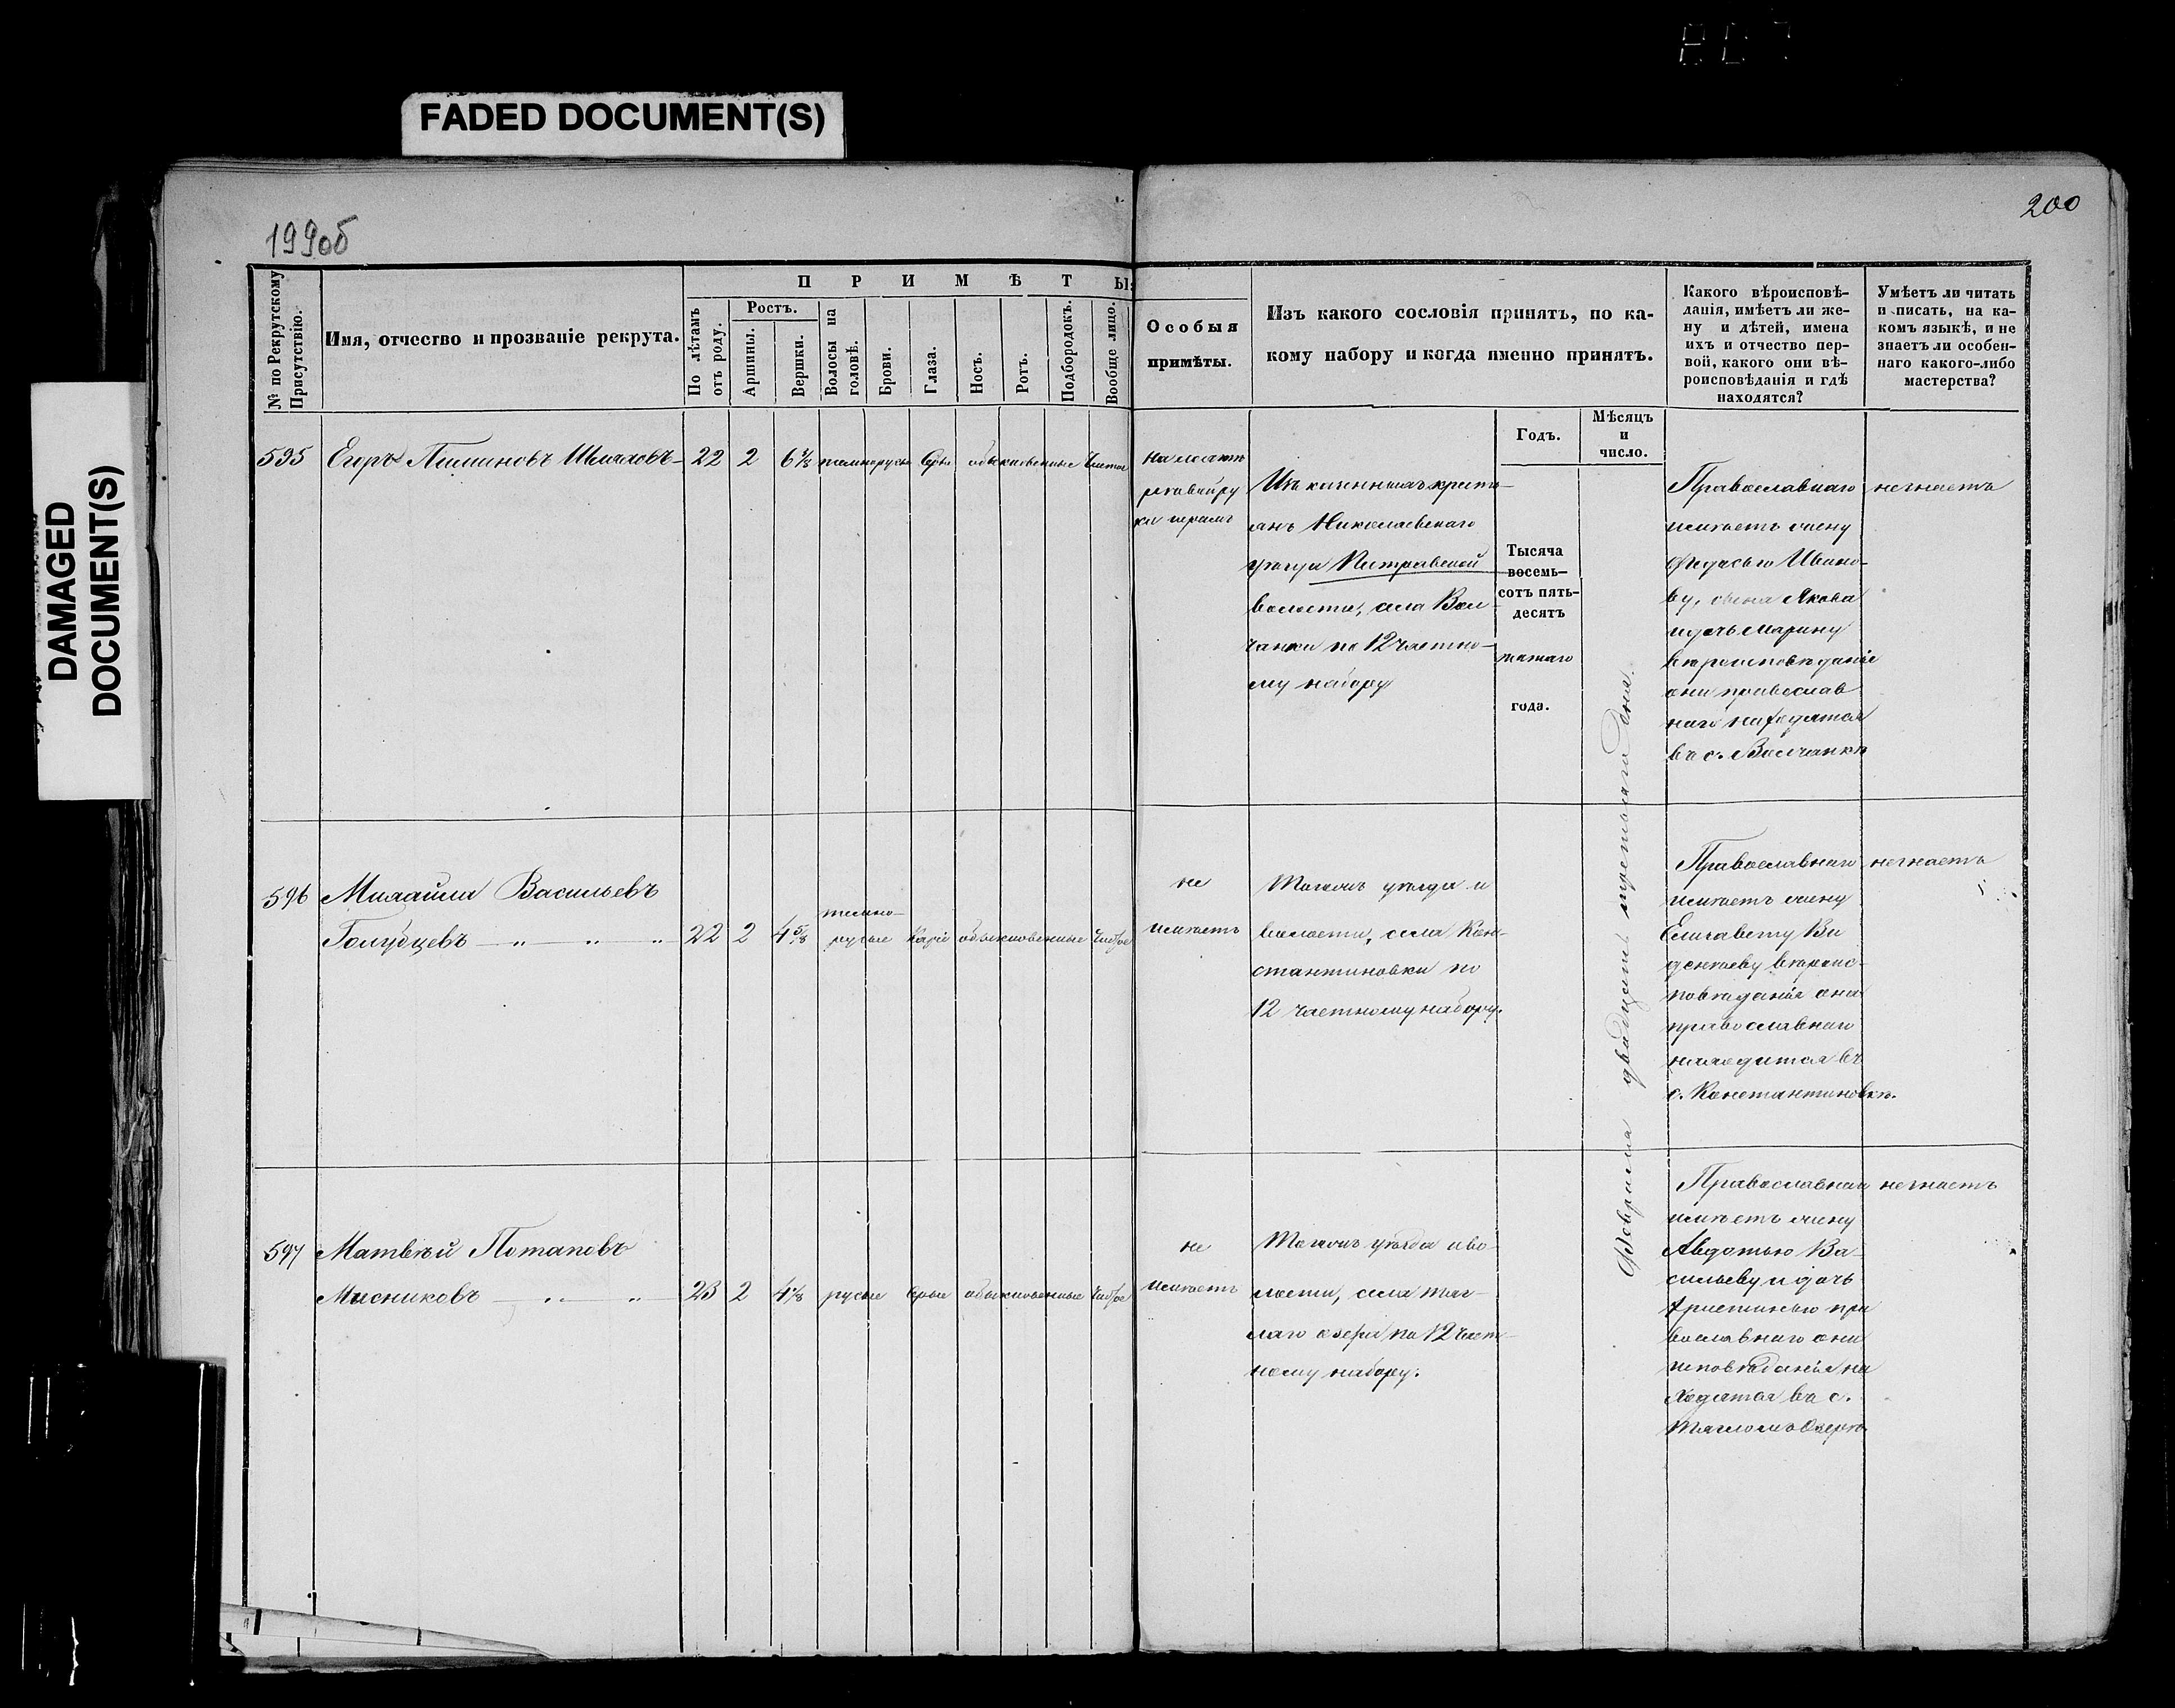 FADED DOCUMENT(S)
DAMAGED
DOCUMENT(S)
199об
200
№ по Рекрутскому Присутствію.
Имя, отчество и прозваніе рекрута.
ПРИМѢТЫ:
По лѣтамъ отъ роду.
Ростъ.
Аршины.
Вершки.
Волосы на головѣ.
Брови.
Глаза.
Носъ.
Ротъ.
Подбородокъ.
Вообще лицо.
Особыя
примѣты.
Изъ какого сословія принятъ, по ка-
кому набору и когда именно принятъ.
Годъ.
Мѣсяцъ
и
число.
Какого вѣроисповѣ-
данія, имѣетъ ли же-
ну и дѣтей, имена
ихъ и отчество пер-
вой, какого они вѣ-
роисповѣданія и гдѣ
находятся?
Умѣетъ ли читать
и писать, на ка-
комъ языкѣ, и не
знаетъ ли особен-
наго какого-либо
мастерства?
595 Егоръ 22 2 темнорусые обыкновенные чистое
Изъ казенныхъ кресть-
янъ Николаевскаго
уѣзда Петравской
волости, села Вол-
чанки по 12 частно-
му набору
Тысяча
восемь-
сотъ пять-
десятъ
пятаго
года.
Февраля двадцать третьяго дня.
Православнаго
имѣетъ жену
Федосью Ивано-
ву, сына Якова
и дочь Марину
вѣроисповѣданіе
они православ
наго находятся
въ с. Волчанкѣ
незнаетъ
596 Михайла Васильевъ
Голубцевъ 22 2 4 5/8 темно-
русые каріе обыкновенные чистое
не
имѣетъ
Тогожъ уѣзда и
волости, села Кон-
стантиновки по
12 частному набору.
Православнаго
имѣетъ жену
Елизавету
вѣроис-
повѣданія она
православнаго
находится въ
с. Константиновкѣ.
незнаетъ
597 Матвѣй Потаповъ
Мясниковъ 23 2 русые сѣрые обыкновенные чистое
не
имѣетъ
Тогожъ уѣзда и во-
лости, села Тяг-
лаго озера по 12 част-
ному набору.
Православнаго
имѣетъ жену
Авдотью Ва-
сильеву и дочь
Христинью пра
вославнаго они
исповѣданія на
ходятся въ с.
Тягломъ Озерѣ.
незнаетъ